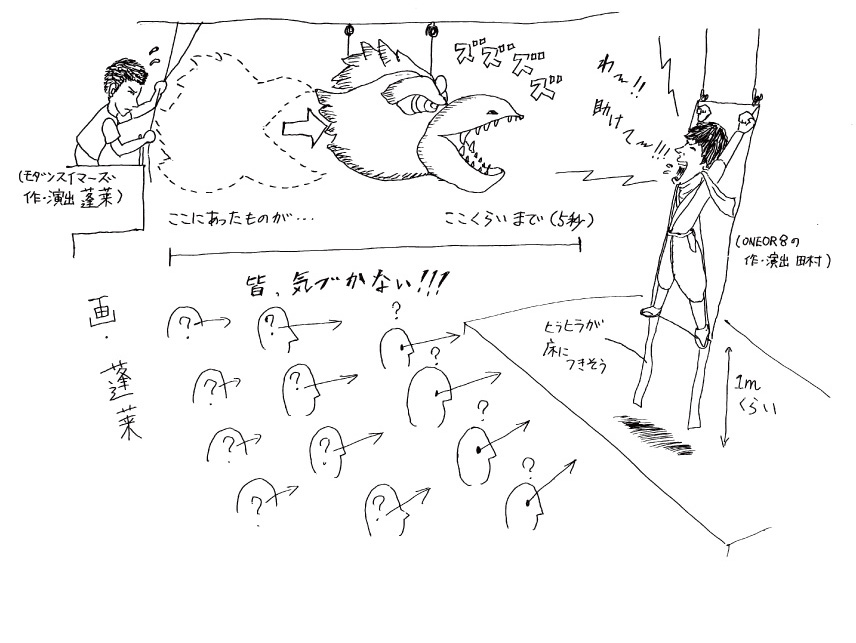 ズズズズ
わ〜!!
助けて〜!!!
(モダンスイマーズ
作・演出 蓬莱)
ここにあったものが・・・
ここくらいまで(5秒)
(ONEOR8の
作・演出 田村)
皆、気づかない!!!
画・蓬莱
ヒラヒラが
床に
つきそう
1m
くらい
? ? ?
? ? ?
? ? ?
? ? ?